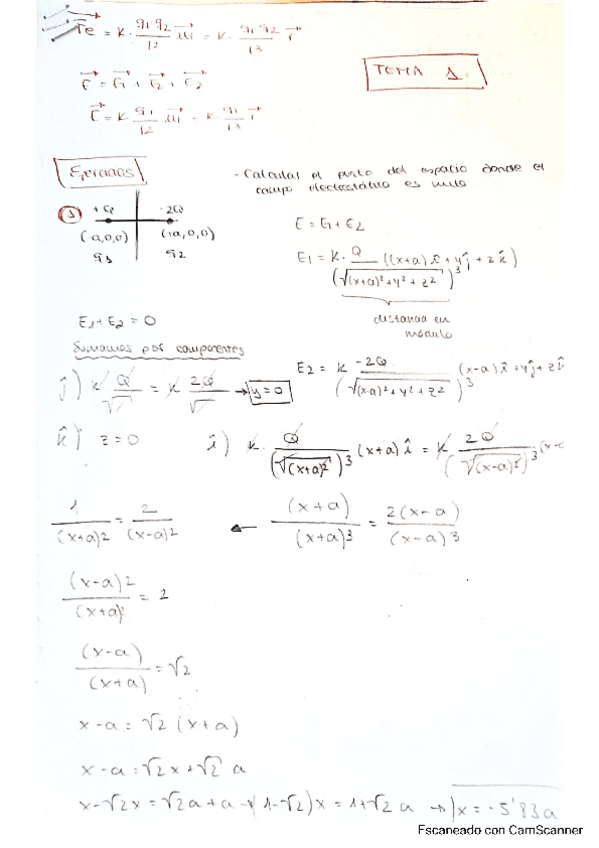 Fe = K · q1 q2 / r2 · ur = K · q1 q2 / r3 r
E = E1 + E2 + E2
TEMA 1.
E = K · q1 / r2 · ur = K · q1 / r3 r
Ejercicios
- Calcular el punto del espacio donde el campo electrostático es nulo
1 +Q -2Q
(-a,0,0) (+a,0,0)
q1 q2
E = E1 + E2
E1 = K · Q / (√(x+a)2 + y2 + z2)3 ((x+a) i + y j + z k)
distancia en módulo
E1 + E2 = 0
Sumamos por componentes
E2 = K -2Q / (√(x-a)2 + y2 + z2)3 (x-a) i + y j + z k
j) K Q / √ = K 2Q / √ → y = 0
k) z = 0
i) K · Q / (√(x+a)2)3 (x+a) i = K 2Q / (√(x-a)2)3 (x-
1 / (x+a)2 = 2 / (x-a)2 ← (x+a) / (x+a)3 = 2(x-a) / (x-a)3
(x-a)2 / (x+a)2 = 2
(x-a) / (x+a) = √2
x-a = √2 (x+a)
x-a = √2 x + √2 a
x-√2x = √2a + a → (1-√2)x = 1+√2 a → x = -5'83a
Escaneado con CamScanner